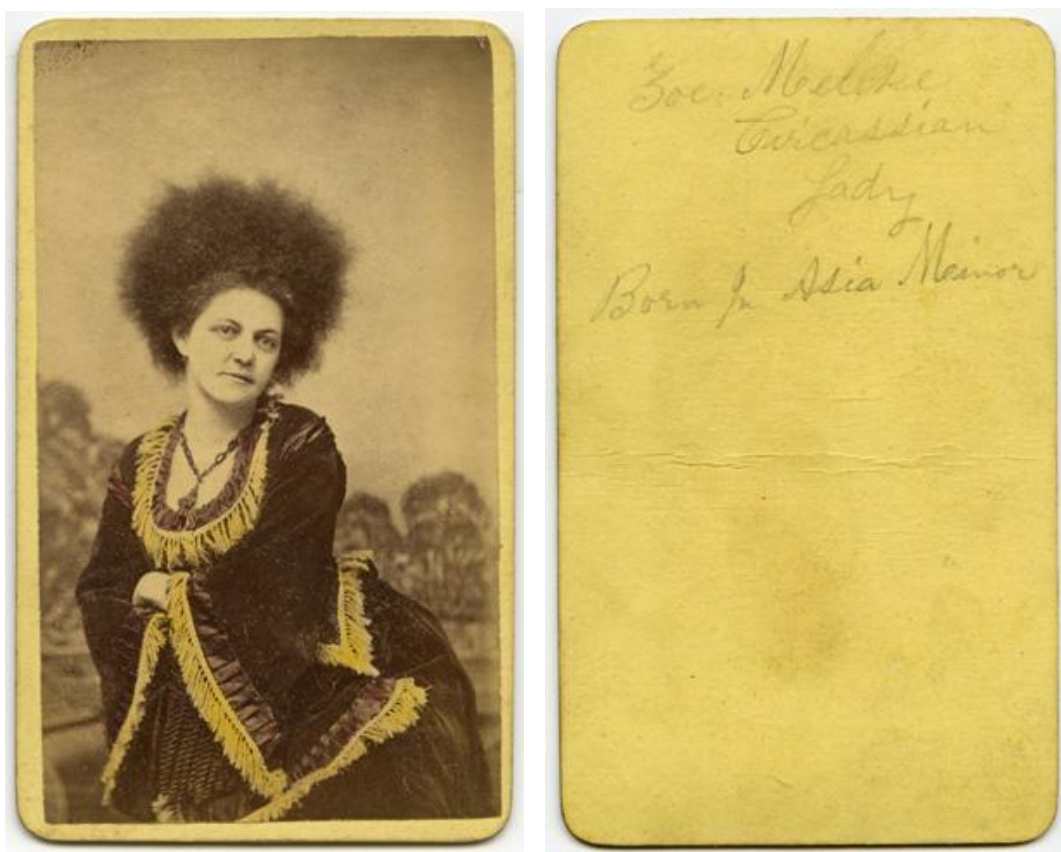 Zoe. Meleke
Circassian
Lady
Born In Asia Meinor